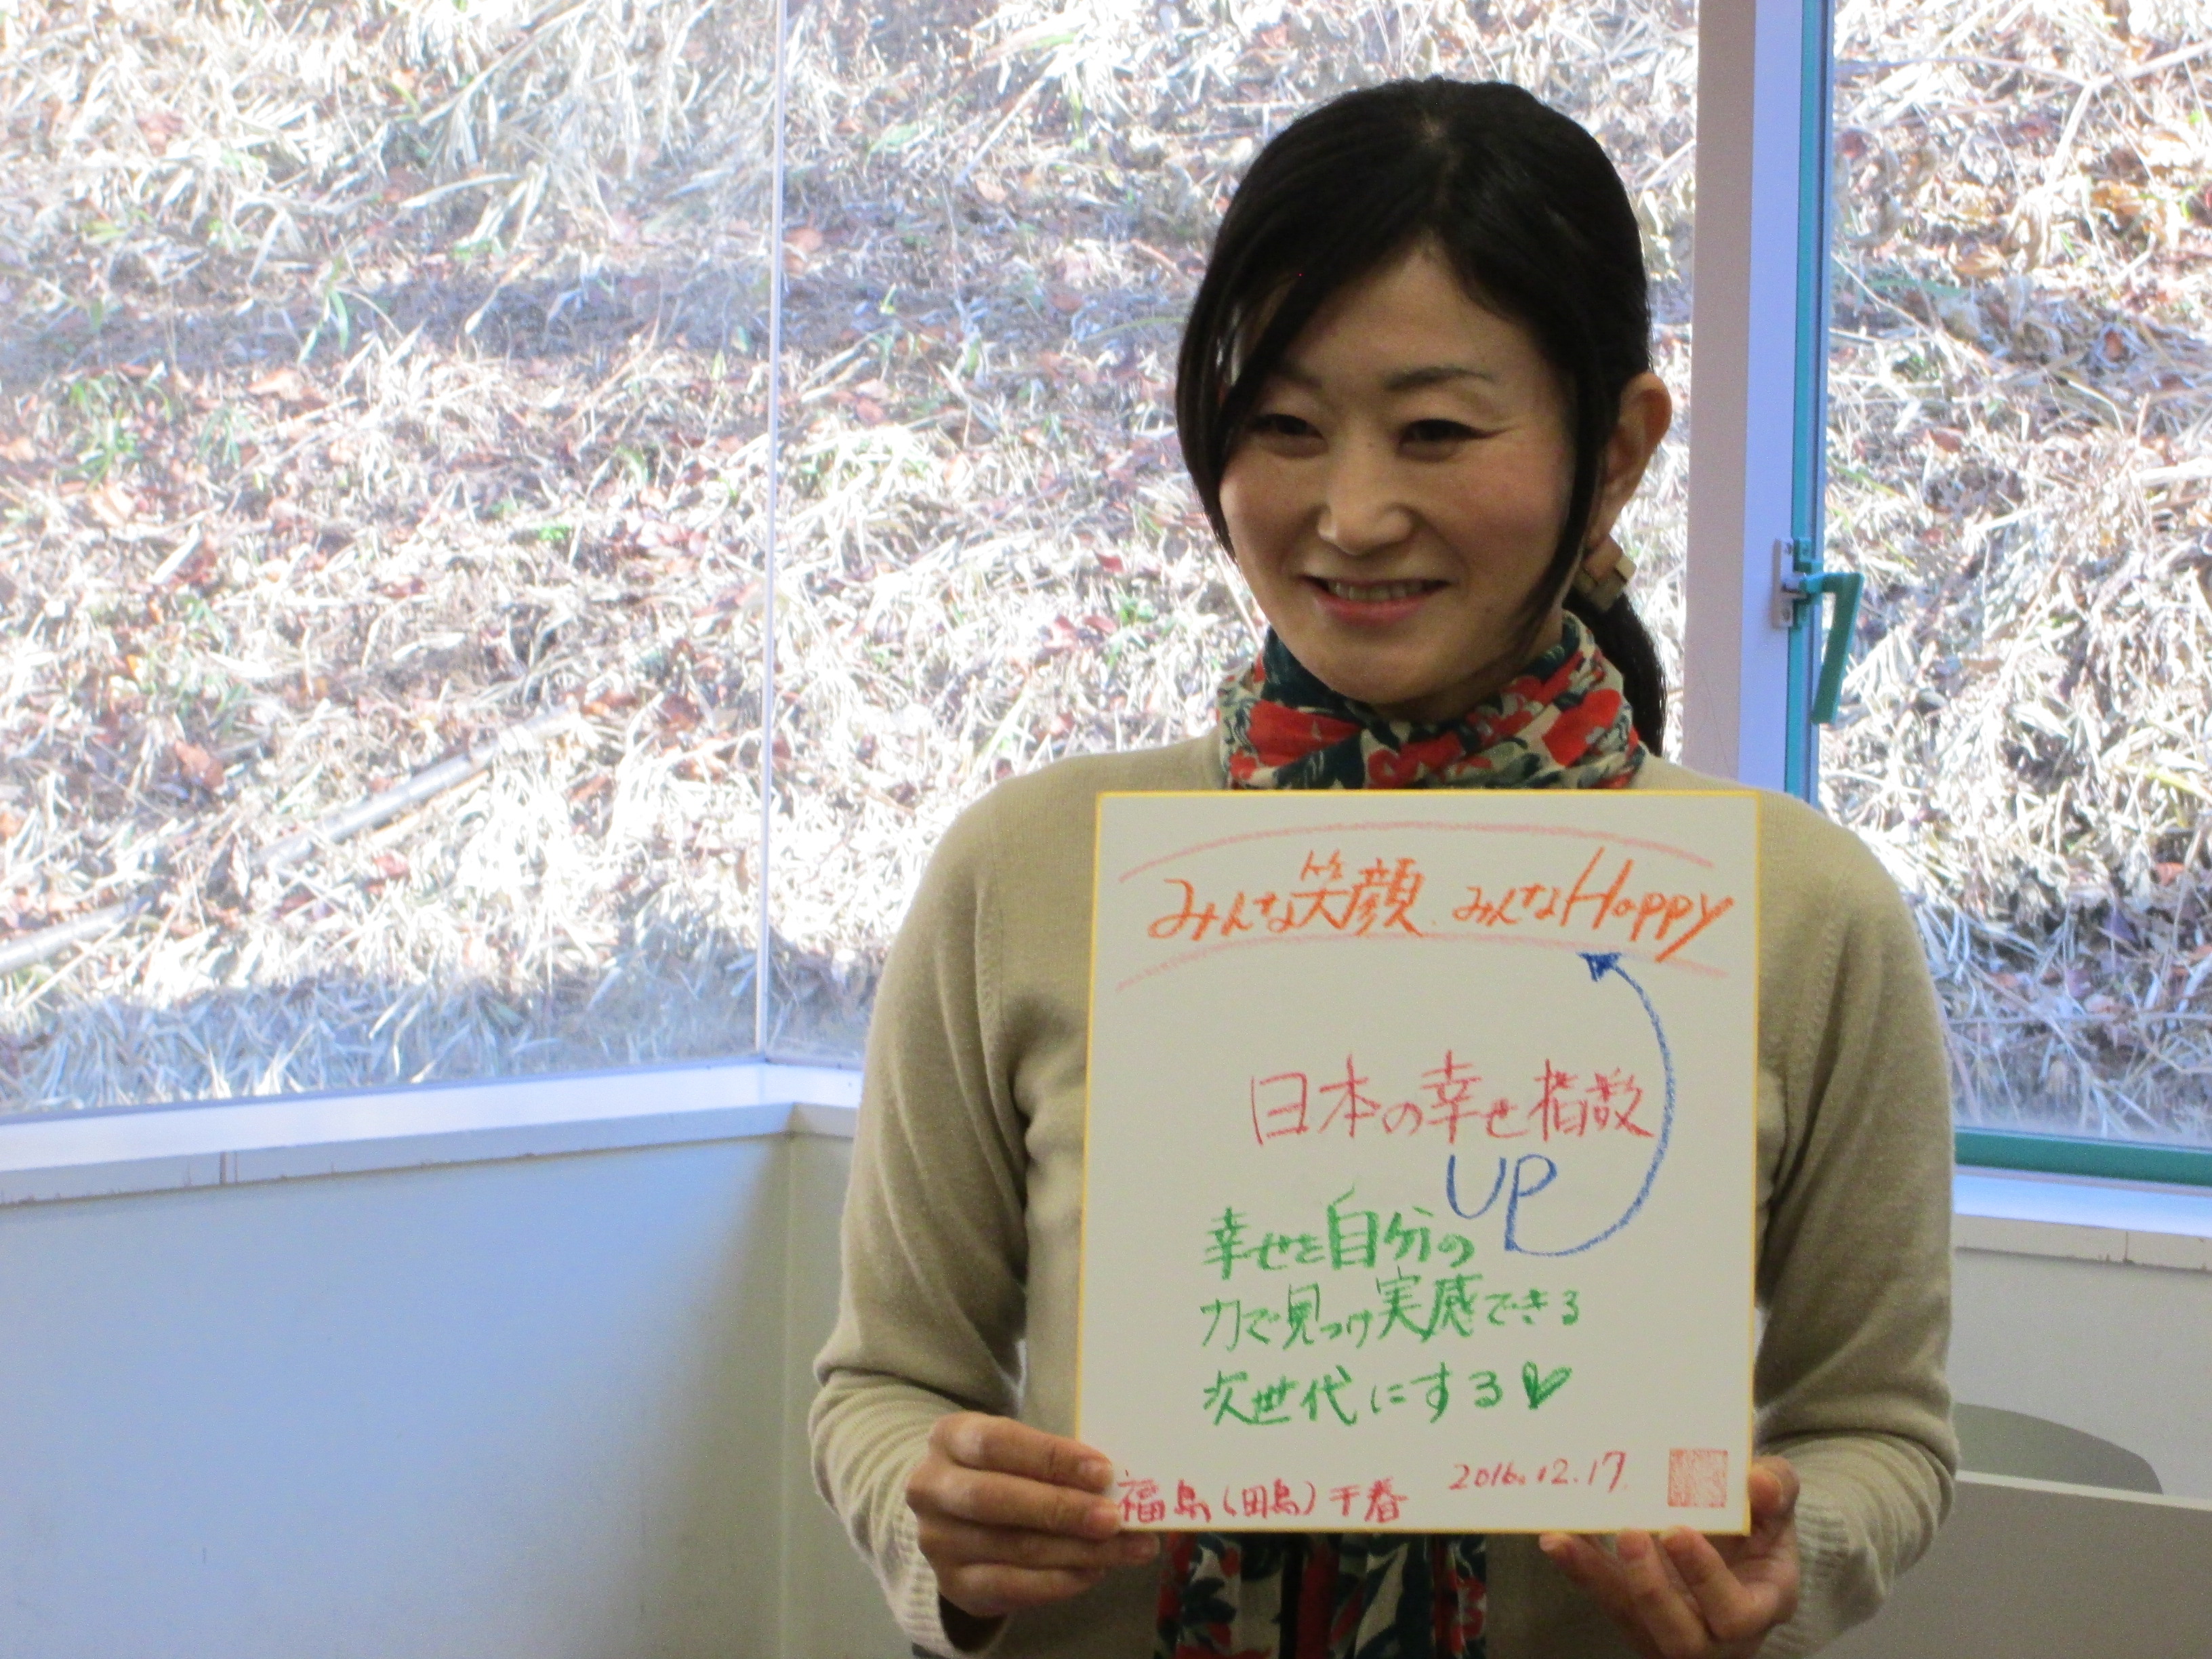 みんな笑顔.みんなHappy
日本の幸せ指数
UP
幸せを自分の
力で見つけ実感できる
次世代にする♥
福島(田島)千春 2016.12.17.